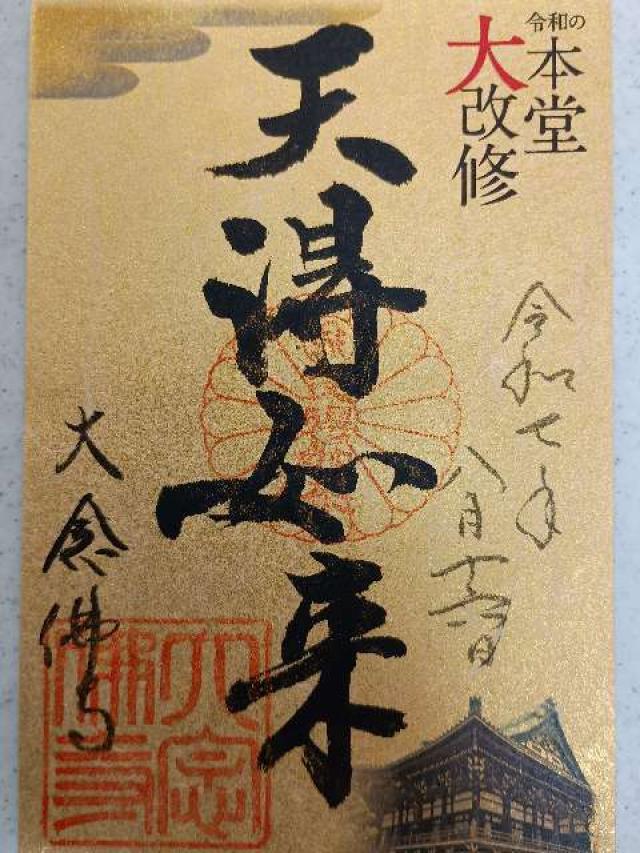 令和の
本堂
大改修
令和七年
八月十六日
天得如来
大念佛寺
大念佛寺